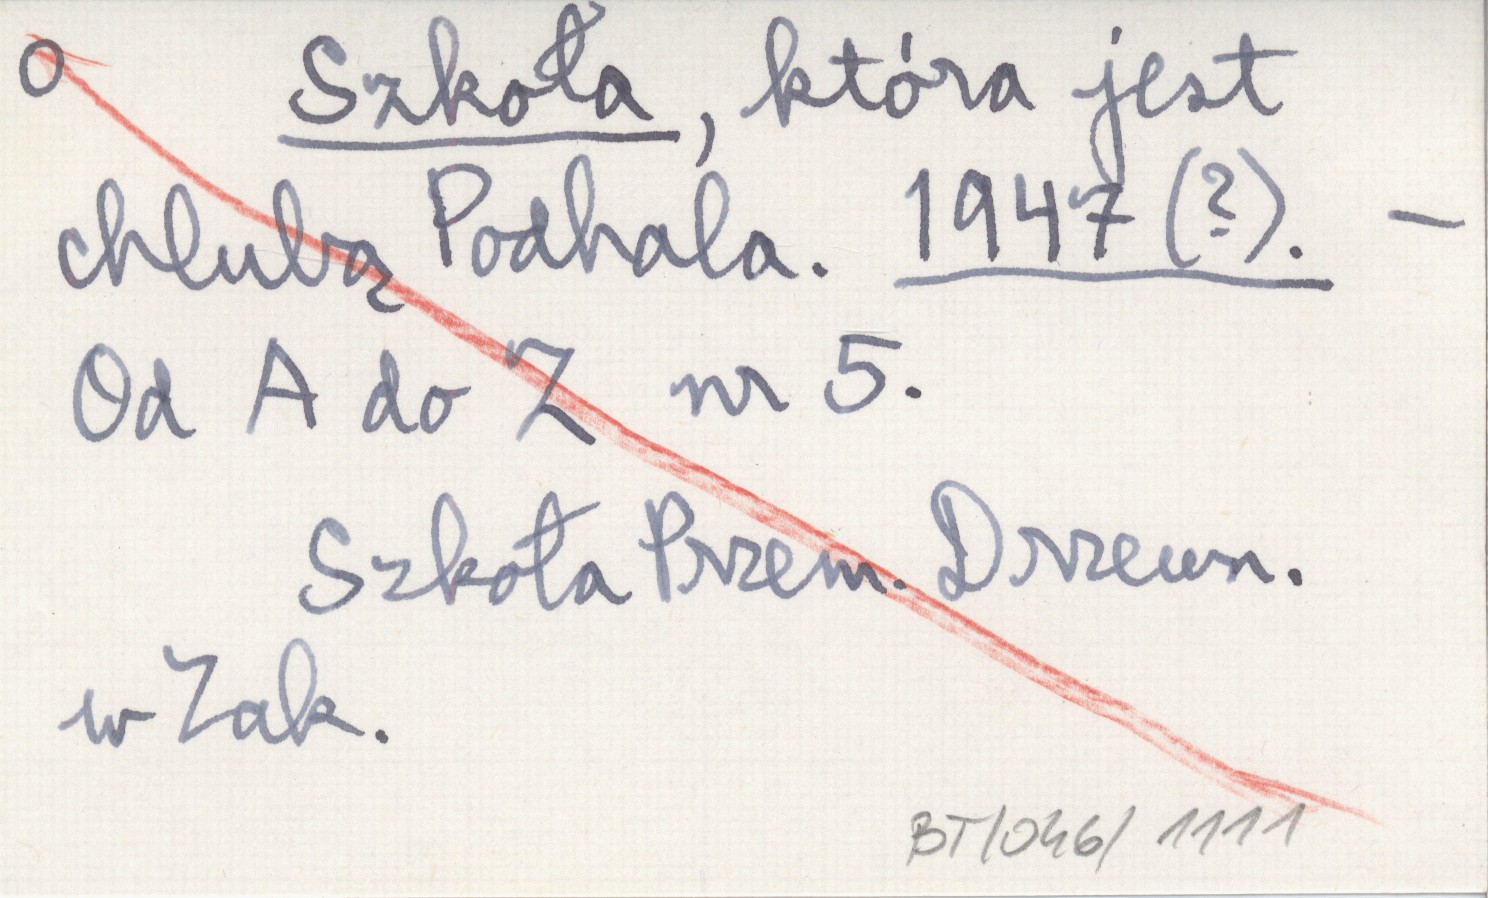 O Szkoła, która jest
chlubą Podhala. 1947 (?). —
Od A do Z nr 5.
Szkoła Przem. Drzewn.
w Zak.
BT/046/1111